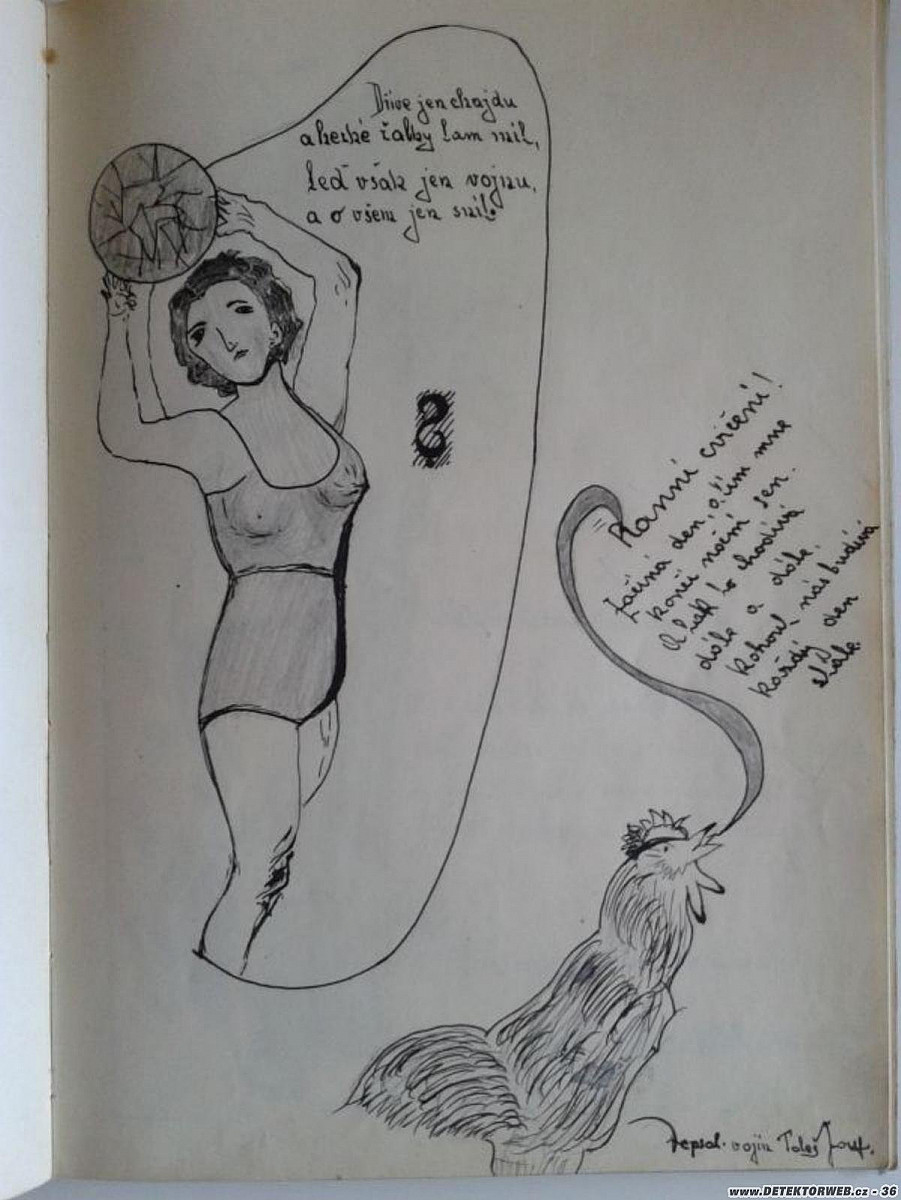 Dříve jen chajdu
a hezké žabky tam mil,
teď však jen vojnu,
a o všem jen snil.
Ranní cvičení!
Začíná den, a tím mne
končí noční sen.
A tak to chodívá
dále a dále.
Kohout nás budívá
každý den
stále
vojín Josef.
www.DETEKTORWEB.cz - 36